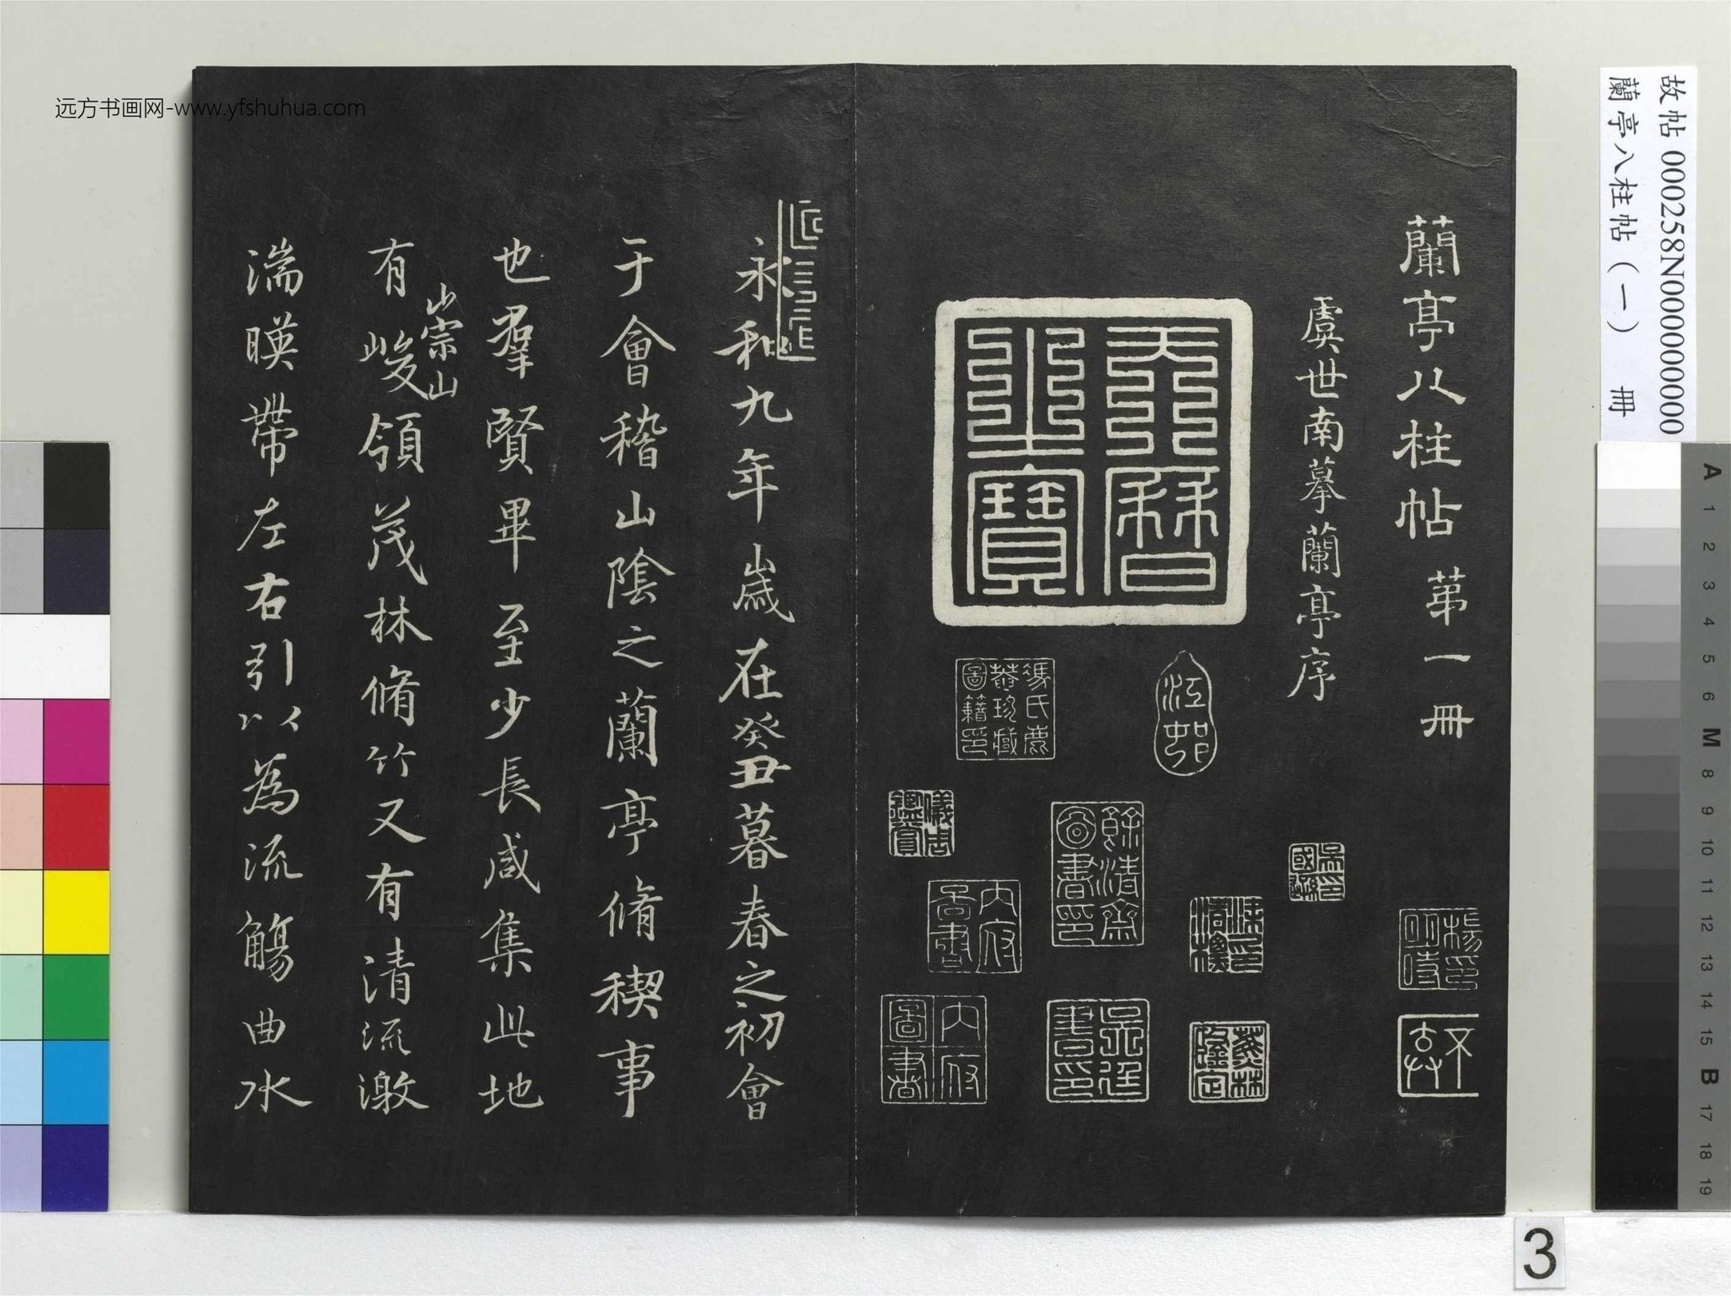 远方书画网-www.yfshuhua.com
故帖 000258N000000000
蘭亭八柱帖（一） 冊
蘭亭八柱帖 苐一冊
虞世南摹蘭亭序
天曆之寶
馮氏鹿菴珍藏圖籍印
江邨
儀周鑑賞
餘清齋圖書印
內府圖書
吳廷書印
蕉林鑑定
永和九年歲在癸丑暮春之初會
于會稽山陰之蘭亭脩稧事
也羣賢畢至少長咸集此地
有崇山峻領茂林脩竹又有清流激
湍暎帶左右引以為流觴曲水
A 1 2 3 4 5 6 M 8 9 10 11 12 13 14 15 B 17 18 19
3